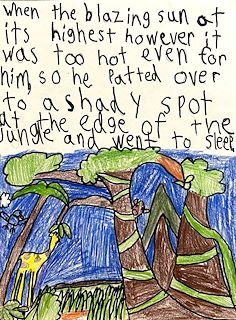 when the blazing sun at
its highest however it
was too hot even for
him, so he Patted over
to a shady spot
at the edge of the
Jungle and went to sleep